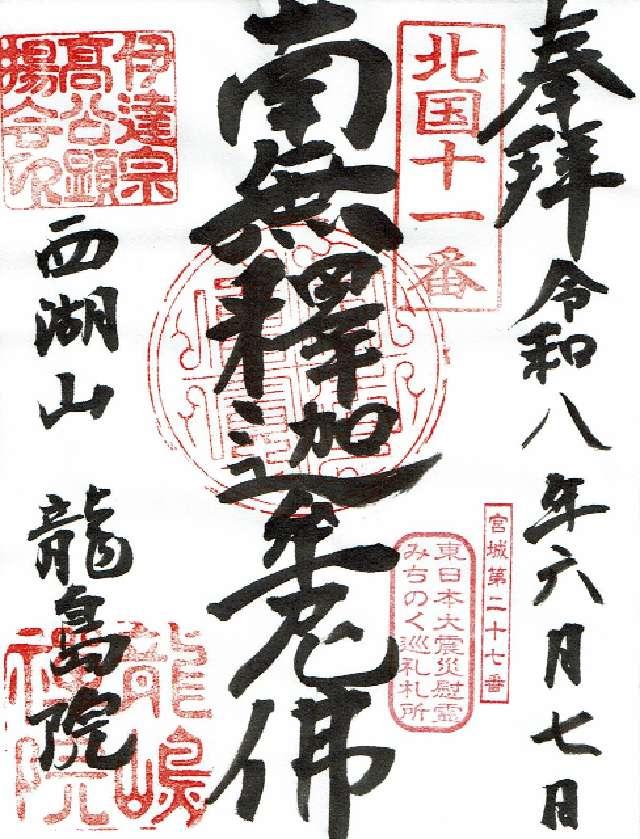 奉拝
令和八年六月七日
北国十一番
宮城第二十七番
東日本大震災慰霊
みちのく巡礼札所
南無釋迦牟尼佛
伊達宗
高公顕
揚会印
西湖山
龍島院
龍嶋
禅院